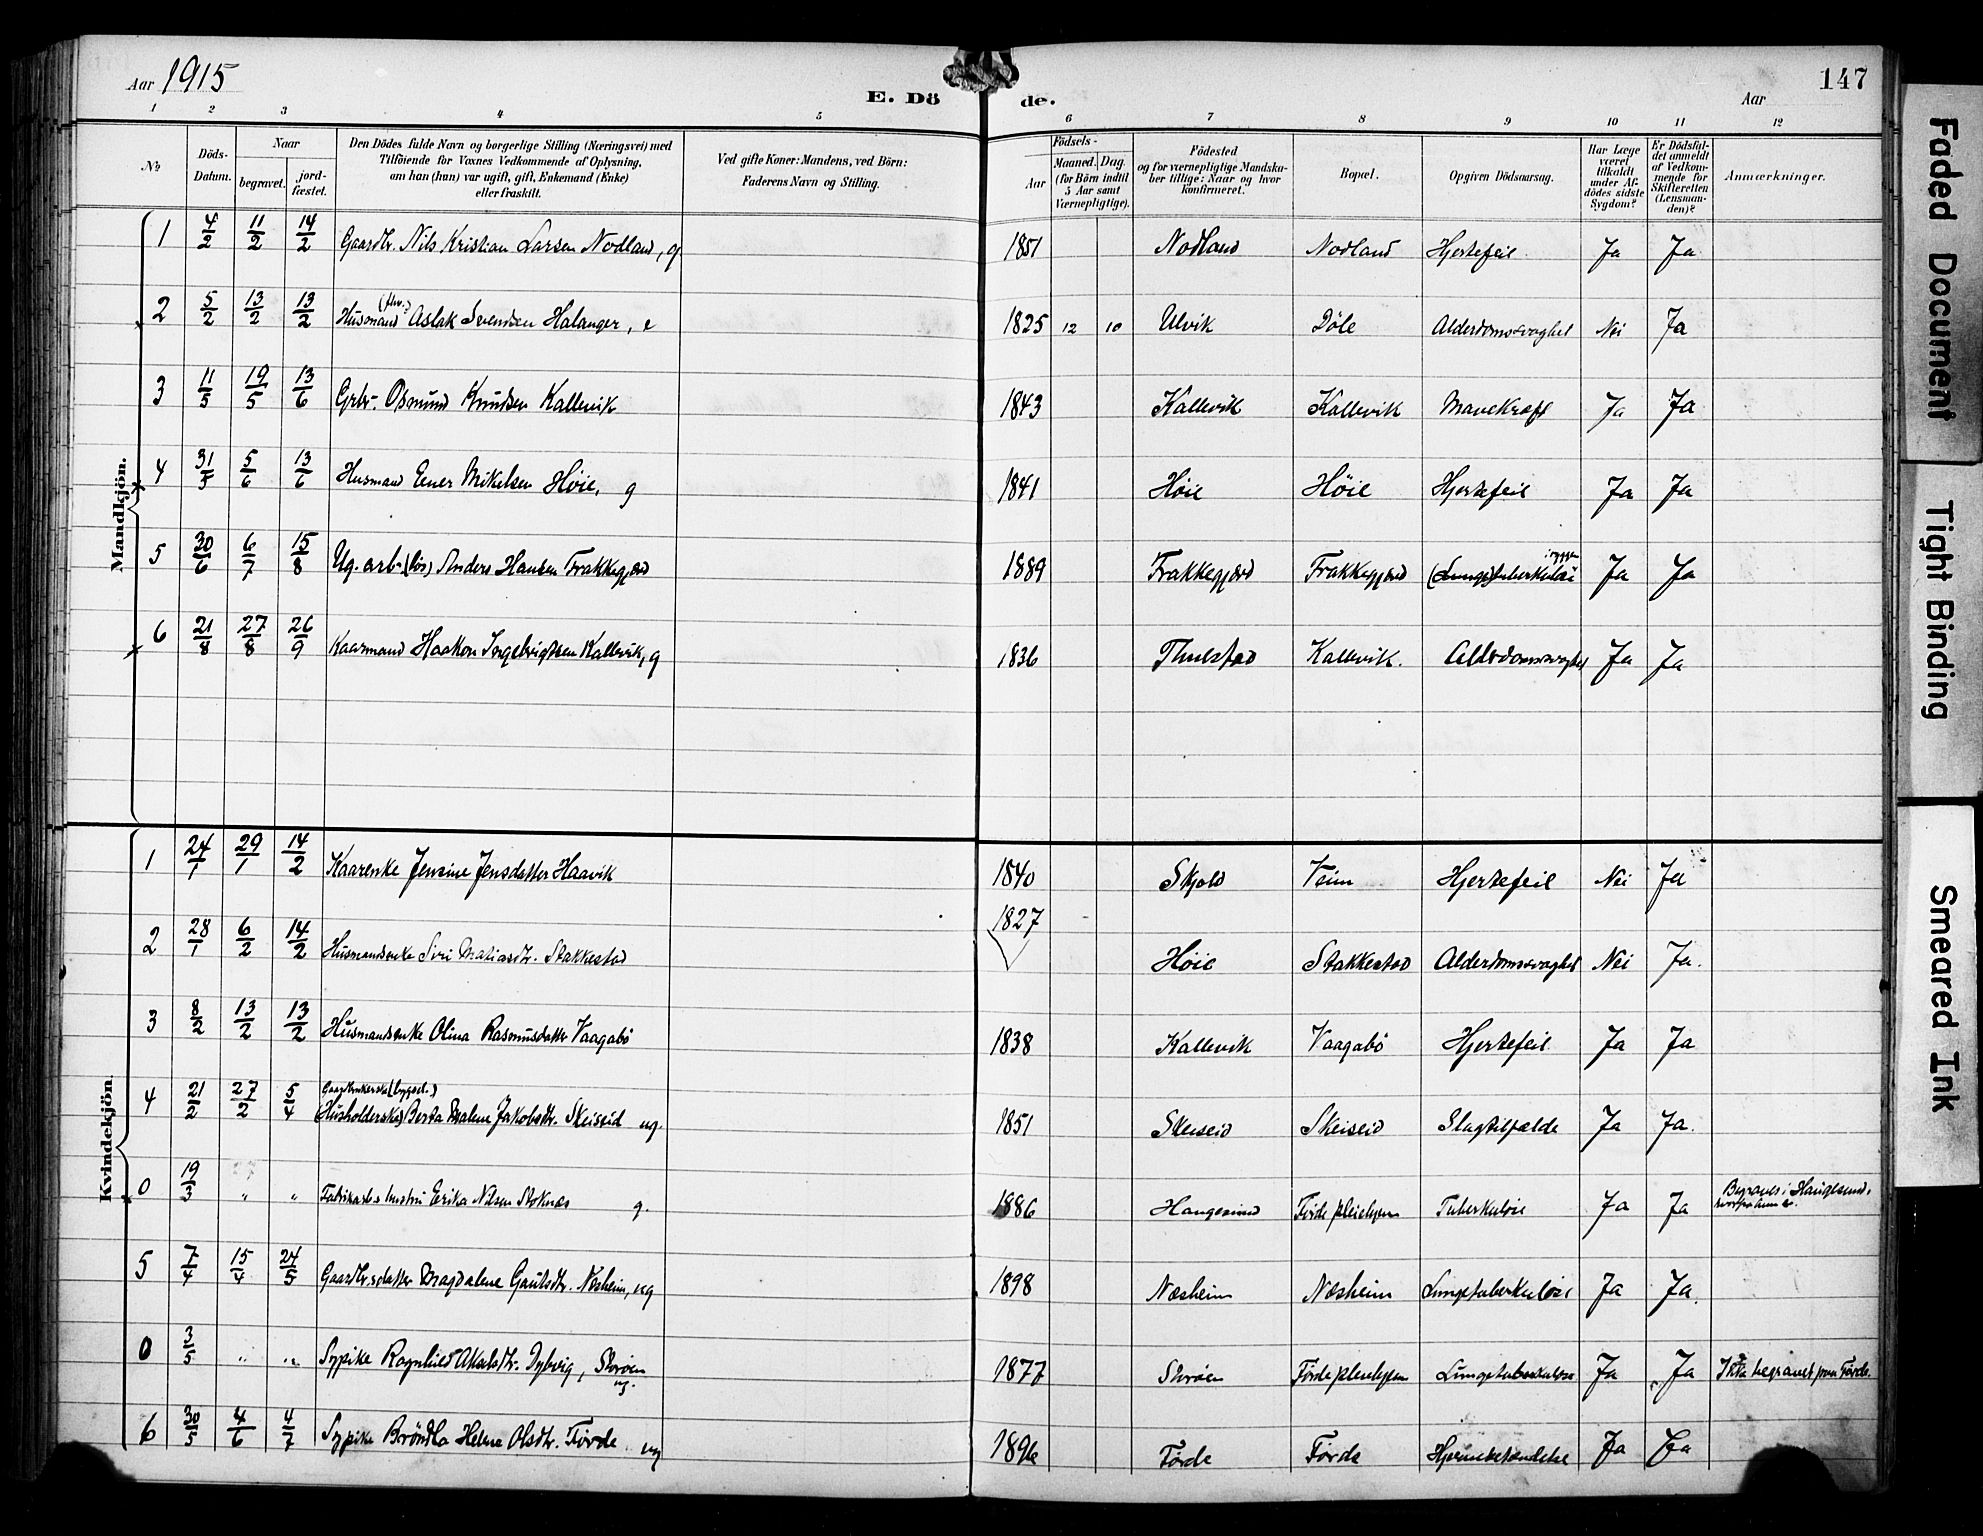 Aar 1915
E. Dö de.
Aar
147
1 2 3 4 5 6 7 8 9 10 11 12
No.
Döds-Datum.
Naar
begravet.
jord-fæstet.
Den Dödes fulde Navn og borgerlige Stilling (Næringsvei) med
Tilföiende for Voxnes Vedkommende af Oplysning,
om han (hun) var ugift, gift, Enkemand (Enke)
eller fraskilt.
Ved gifte Koner: Mandens, ved Börn:
Faderens Navn og Stilling.
Födsels-
Aar
Maaned. Dag.
(for Börn indtil
5 Aar samt
Værnepligtige).
Födested
og for værnepligtige Mandska-
ber tillige: Naar og hvor
konfirmeret.
Bopæl.
Opgiven Dödsaarsag.
Har Læge
været
tilkaldt
under Af-
dödes sidste
Sygdom?
Er Dödsfal-
det anmeldt
af Vedkom-
mende for
Skifteretten
(Lensman-
den)?
Anmærkninger.
Mandkjön.
1 4/2 11/2 14/2 Gaardbr. Nils Kristian Larsen Nodland, g. 1851 Nodland Nodland Hjertefeil Ja Ja
2 5/2 13/2 13/2 Husmand (fhv.) Aslak Svendsen Halanger, e 1825 12 10 Ulvik Döle Alderdomssvaghet Nei Ja
3 11/5 19/5 13/6 Grbr. Osmund Knudsen Kallevik 1843 Kallevik Kallevik Mavekræft Ja Ja
4 31/5 5/6 13/6 Husmand Ener Mikelsen Höie, g 1841 Höie Höie Hjertefeil Ja Ja
5 30/6 6/7 15/8 Ug. arb. (lös) Anders Hansen Frakkegjærd 1889 Frakkegjærd Frakkegjærd (Lunge)tuberkulose i ryggen Ja Ja
6 21/8 27/8 26/9 Kaarmand Haakon Ingebrigtsen Kallevik, g 1836 Kallevik. Alderdomssvaghet Ja Ja
Kvindekjön.
1 24/1 29/1 14/2 Kaarenke Jensine Jensdatter Haavik 1840 Skjold Veim Hjertefeil Nei Ja
2 28/1 6/2 14/2 Husmandsenke Siri Matiasdtr. Stakkestad 1827 Höie Stakkestad Alderdomssvaghet Nei Ja.
3 8/2 13/2 13/2 Husmandsenke Olina Rasmusdatter Vaagabö 1838 Kallevik Vaagabö Hjertefeil Ja Ja
4 21/2 27/2 5/4 Gaardbrukerske (bygsel.)
(Husholderske) Berta Malene Jakobsdtr. Skeiseid ug. 1851 Skeiseid Skeiseid Slagtilfælde Ja Ja.
0 19/3 " " Fabrikarb.s hustru Erika Nilsen Stoknæs g. 1886 Haugesund Förde pleiehjem Tuberkulose Ja Ja Begraves i Haugesund,
5 7/4 15/4 24/5 Gaardbr.s datter Magdalene Gautsdtr. Næsheim, ug 1898 Næsheim Næsheim Lungetuberkulose Ja Ja.
0 3/5 " " Sypike Ragnhild Akselsdtr. Dybvig, Storöen ug. 1877 Storöen Förde pleiehjem Lungetuberkulose Ja Ja Ikke begravet paa Förde.
6 30/5 4/6 4/7 Sypike Beröndla Helene Olsdtr. Förde ug 1896 Förde Förde Hjernebetændelse Ja Ja
Faded Document
Tight Binding
Smeared Ink